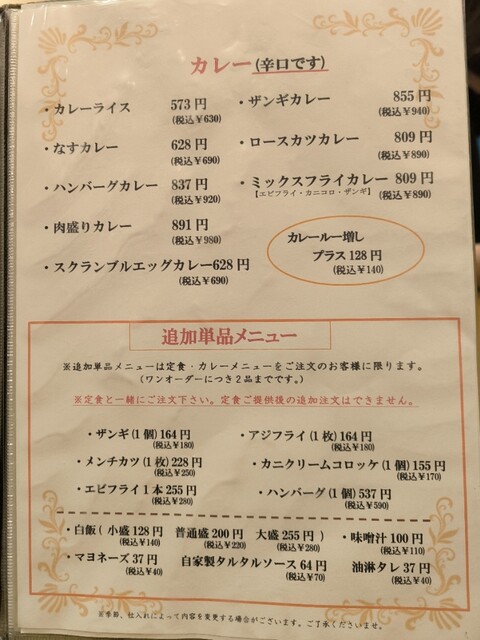 カレー(辛口です)
・カレーライス 573円
(税込￥630)
・なすカレー 628円
(税込￥690)
・ハンバーグカレー 837円
(税込￥920)
・肉盛りカレー 891円
(税込￥980)
・スクランブルエッグカレー628円
(税込￥690)
・ザンギカレー 855円
(税込￥940)
・ロースカツカレー 809円
(税込￥890)
・ミックスフライカレー 809円
【エビフライ・カニコロ・ザンギ】 (税込￥890)
カレールー増し
プラス128円
(税込￥140)
追加単品メニュー
※追加単品メニューは定食・カレーメニューをご注文のお客様に限ります。
(ワンオーダーにつき2品までです。)
※定食と一緒にご注文下さい。定食ご提供後の追加注文はできません。
・ザンギ(1個)164円
(税込￥180)
・アジフライ(1枚)164円
(税込￥180)
・メンチカツ(1枚)228円
(税込￥250)
・カニクリームコロッケ(1個)155円
(税込￥170)
・エビフライ1本255円
(税込￥280)
・ハンバーグ(1個)537円
(税込￥590)
・白飯( 小盛128円 普通盛200円 大盛255円 ) ・味噌汁100円
(税込￥140) (税込￥220) (税込￥280) (税込￥110)
・マヨネーズ37円 自家製タルタルソース64円 油淋タレ37円
(税込￥40) (税込￥70) (税込￥40)
※季節、仕入れによって内容を変更する場合がございます。ご了承くださいませ。